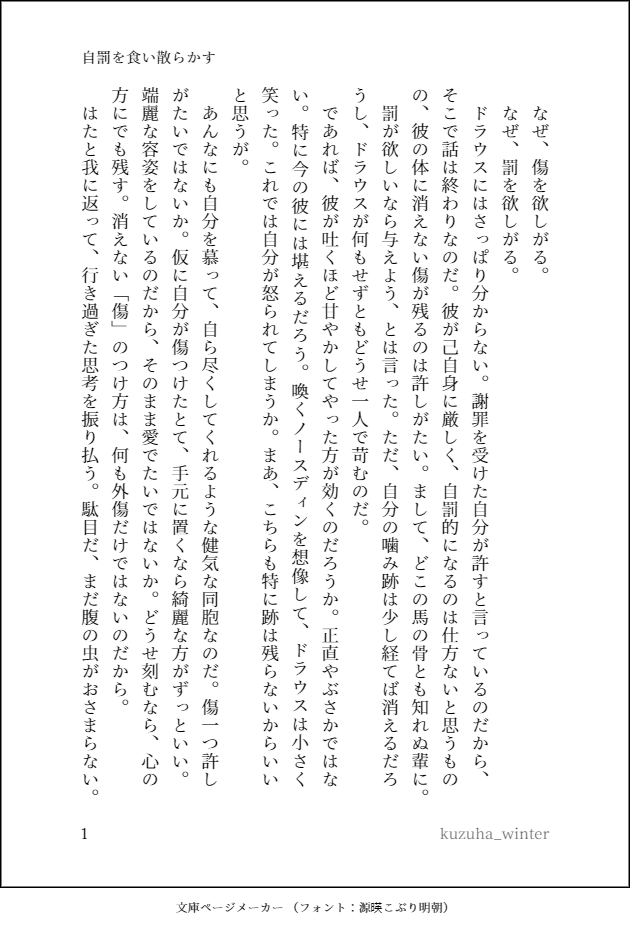 自罰を食い散らかす
なぜ、傷を欲しがる。
なぜ、罰を欲しがる。
ドラウスにはさっぱり分からない。謝罪を受けた自分が許すと言っているのだから、
そこで話は終わりなのだ。彼が己自身に厳しく、自罰的になるのは仕方ないと思うもの
の、彼の体に消えない傷が残るのは許しがたい。まして、どこの馬の骨とも知れぬ輩に。
罰が欲しいなら与えよう、とは言った。ただ、自分の噛み跡は少し経てば消えるだろ
うし、ドラウスが何もせずともどうせ一人で苛むのだ。
であれば、彼が吐くほど甘やかしてやった方が効くのだろうか。正直やぶさかではな
い。特に今の彼には堪えるだろう。喚くノースディンを想像して、ドラウスは小さく
笑った。これでは自分が怒られてしまうか。まあ、こちらも特に跡は残らないからいい
と思うが。
あんなにも自分を慕って、自ら尽くしてくれるような健気な同胞なのだ。傷一つ許し
がたいではないか。仮に自分が傷つけたとて、手元に置くなら綺麗な方がずっといい。
端麗な容姿をしているのだから、そのまま愛でたいではないか。どうせ刻むなら、心の
方にでも残す。消えない「傷」のつけ方は、何も外傷だけではないのだから。
はたと我に返って、行き過ぎた思考を振り払う。駄目だ、まだ腹の虫がおさまらない。
1
kuzuha_winter
文庫ページメーカー（フォント：源暎こぶり明朝）